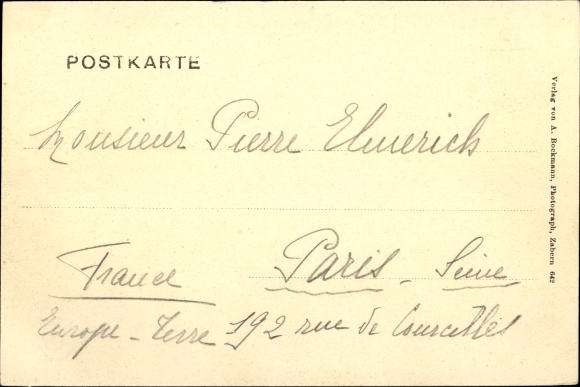 POSTKARTE
Monsieur Pierre Elmerich
France Paris - Seine
Europe - Terre 192 rue de Courcelles
Verlag von A. Bockmann, Photograph, Zabern 642